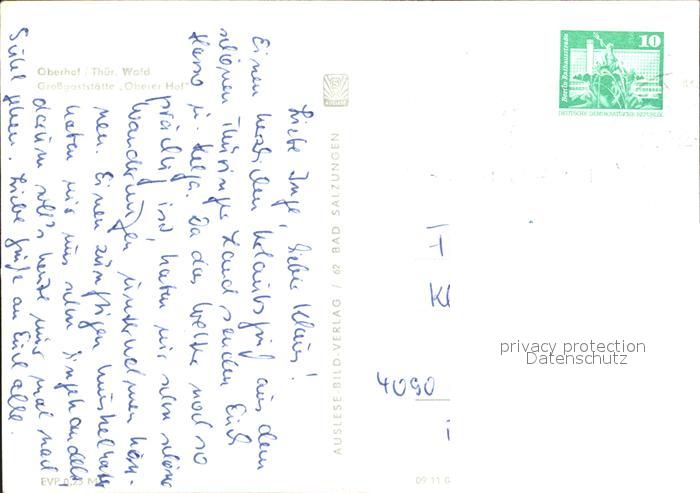 Oberhof / Thür. Wald
Großgaststätte „Oberer Hof"
Liebe Inge, lieber Klaus!
Einen herzlichen Urlaubsgruß aus dem
schönen Thüringer Land senden Euch
Helga. Da das Wetter noch so
prächtig ist, haben wir schon schöne
Wanderungen unternehmen kön-
nen. Einen zünftigen Muskelkater
haben wir uns schon eingehandelt,
darum soll's heute nur mal nach
Suhl gehen. Liebe Grüße an Euch alle.
EVP 0,25 M
AUSLESE-BILD-VERLAG / 62 BAD SALZUNGEN
09 11 0
10
Berlin Rathausstraße
DEUTSCHE DEMOKRATISCHE REPUBLIK
Kl
4090
privacy protection
Datenschutz